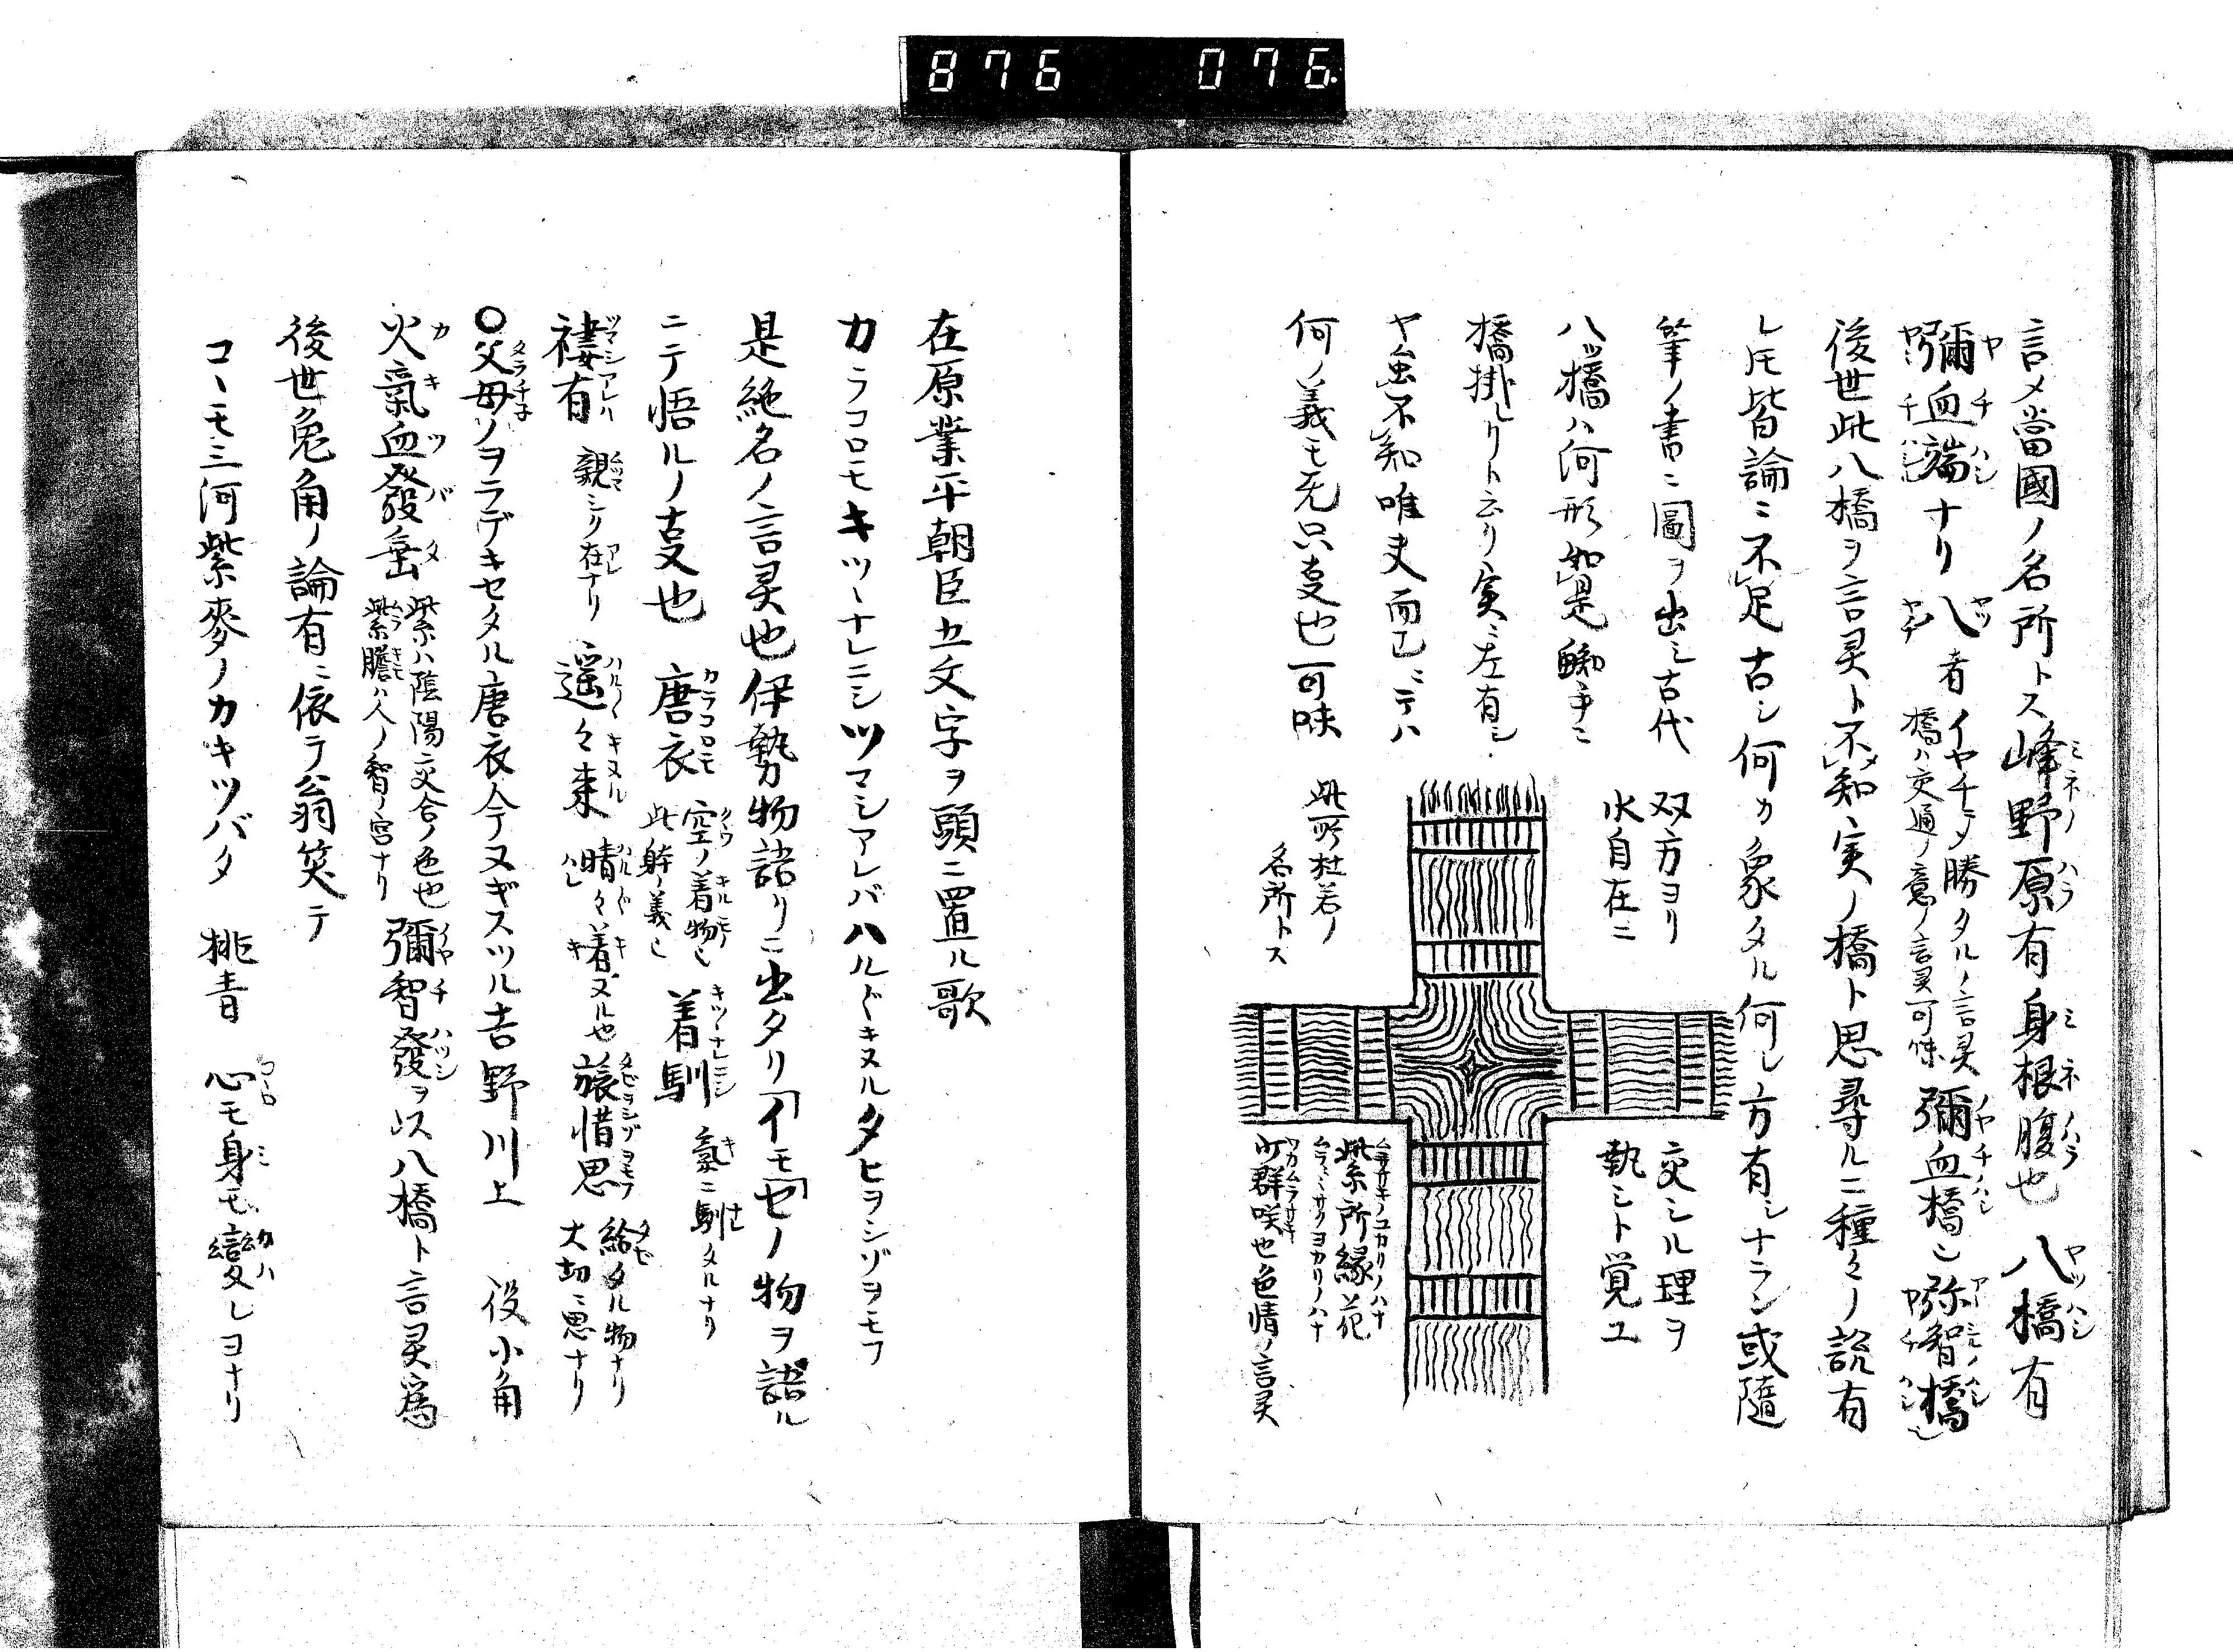 876 076.
言メ當國ノ名所トス峰野原有身根腹也八橋有
彌血端ナリ八者イヤチヲノ勝タルノ言灵橋ハ交通ノ意ノ言灵可味彌血橋也弥智橋也
後世此八橋ヲ言灵ト不知実ノ橋ト思尋ルニ種々ノ説有
レ𪜈皆論ニ不足古シ何カ象タル何レ方有シナラン或隨
筆ノ書ニ圖ヲ出シ古代
八ッ橋ハ何形如是蜘手ニ
橋掛レリト云リ実ニ左有シ
ヤ虫不知唯丈而已ニテハ
何ノ義モ无只叓也可味
双方ヨリ
水自在ニ
交シル理ヲ
執シト覚ユ
此所杜若ノ
名所トス
紫所縁ノ花
群咲也色情ノ言灵
在原業平朝臣五文字ヲ頭ニ置ル歌
カラコロモキツヽナレニシツマシアレバハルバルキヌルタヒヲシゾヲモフ
是絶名ノ言灵也伊勢物語リニ出タリイモセノ物ヲ語ル
ニテ悟ルノ叓也 唐衣 空ノ着物也此躰ノ義也 着馴 氣ニ馴タルナリ
褄有 親シク在ナリ 遥々来 晴々着ヌル也 旅惜思 給タル物ナリ大切ニ思ナリ
〇父母ソヲラデキセタル唐衣今ヌギスツル吉野川上 役小角
火氣血發垂 紫ハ陰陽交合ノ色也紫膽ハ人ノ智ノ宮ナリ 彌智發ヲ以八橋ト言灵爲
後世兔角ノ論有ニ依テ翁笑テ
コヽモ三河紫麥ノカキツバタ 桃青 心モ身モ變レヨナリ